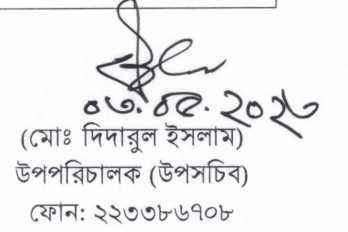 ০৩. ০৫. ২০২৩
(মোঃ দিদারুল ইসলাম)
উপপরিচালক (উপসচিব)
ফোন: ২২৩৩৮৬৭০৮